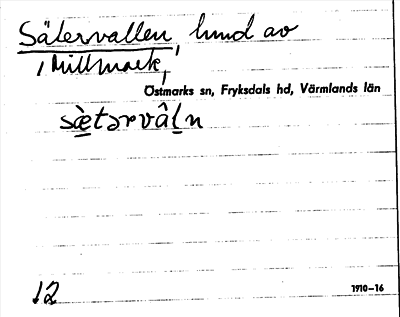 Sätervallen, hmd av
Millmark,
Östmarks sn, Fryksdals hd, Värmlands län
sæ̀tərvâl̠n
12 1910–16